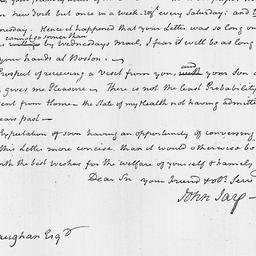 in New York but once in a week, viz. every Saturday. and t
nesday. Hence it happened that your Letter was so long on
cannot go sooner than
by Wednesdays Mail, I fear it will be as long
your hands at Boston. —
Prospect of receiving a Visit from you and your Son a
gives me Pleasure — There is not the least Probability
sent from Home — the State of my Health not having admitted
ears past —
Expectation of soon having an opportunity of conversing
this Letter more concise, than it would otherwise be
th the best wishes for the welfare of yourself & family
Dear Sir your Friend & obt. Serv
John Jay —
aughan Esqr